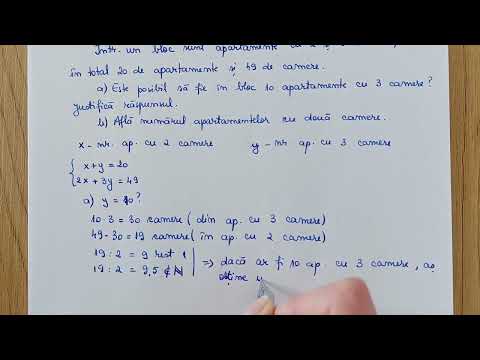 Într-un bloc sunt apartamente cu 2 și
în total 20 de apartamente și 49 de camere.
a) Este posibil să fie în bloc 10 apartamente cu 3 camere?
Justifică răspunsul.
b) Află numărul apartamentelor cu două camere.
x - nr. ap. cu 2 camere y - nr ap. cu 3 camere
{ x+y=20
2x+3y=49
a) y=10?
10·3=30 camere (din ap. cu 3 camere)
49-30=19 camere (în ap. cu 2 camere)
19:2=9 rest 1
19:2=9,5 ∉ N | ⇒ dacă ar fi 10 ap. cu 3 camere, aș
obține